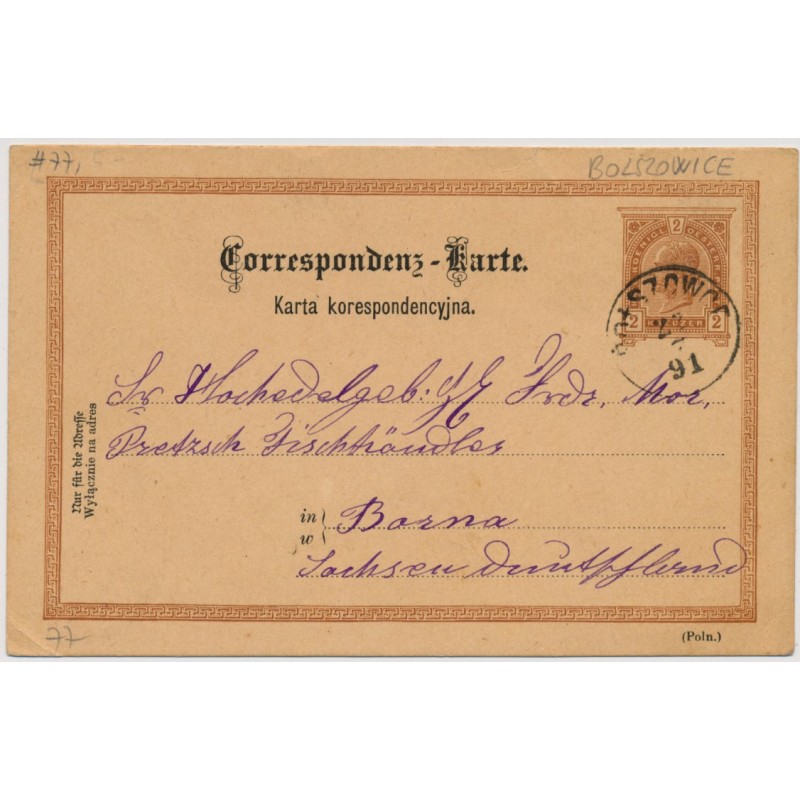 #77,
BOLSZOWICE
2
KOENIGL. OESTERR.
2 KREUZER 2
BOŁSZOWCE
91
Correspondenz-Karte.
Karta korespondencyjna.
Sr. Hochedelgeb. Frdr. Mor.
Pretzsch Fischhändler
in
w
Borna
Sachsen
Nur für die Adresse
Wyłącznie na adres
77
(Poln.)